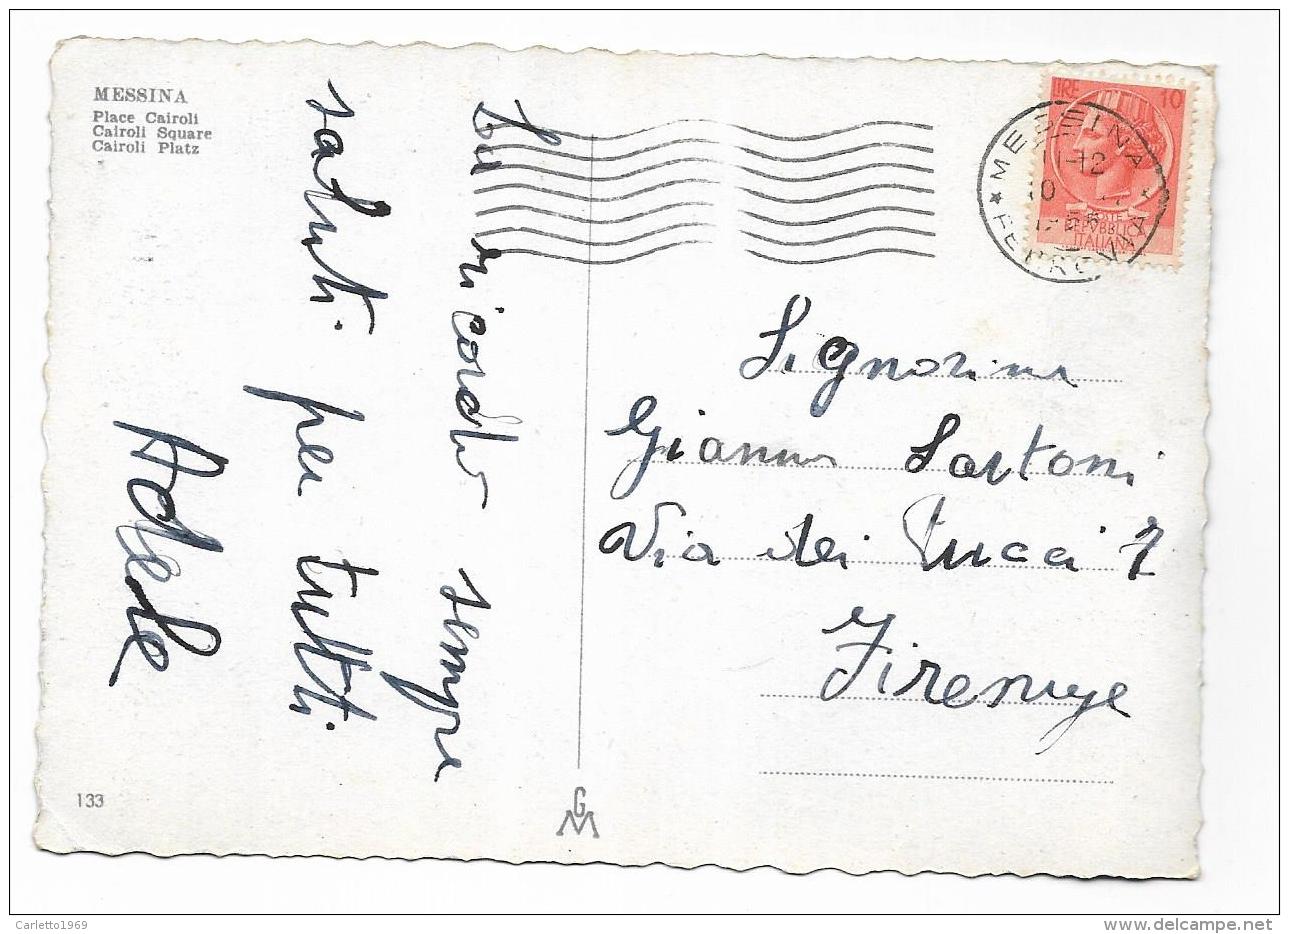 MESSINA
Place Cairoli
Cairoli Square
Cairoli Platz
Tu ricordo sempre
saluti per tutti
Adele
LIRE 10
POSTE
REPVBBLICA
ITALIANA
MESSINA
11-12
10
FERROVIA
Signorina
Gianna Sartoni
Via dei Pucci 2
Firenze
133
GM
Carletto1969
www.delcampe.net